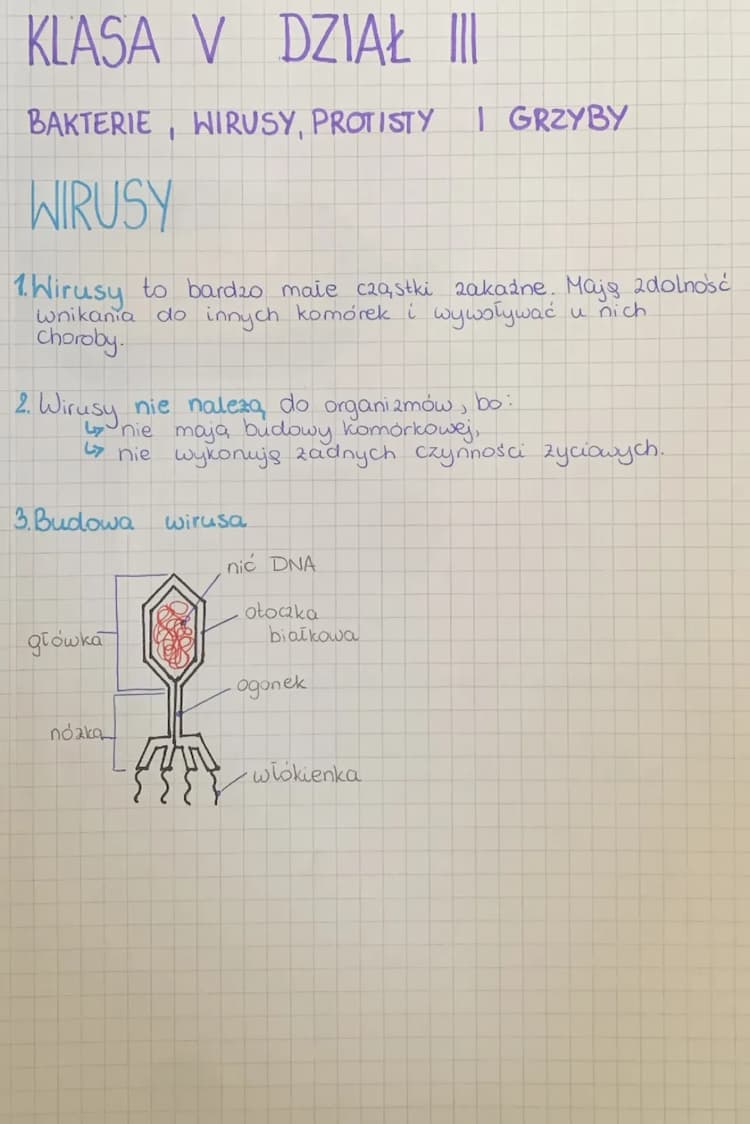 KLASA V DZIAŁ III
BAKTERIE, WIRUSY, PROTISTY I GRZYBY
WIRUSY
1. Wirusy to bardzo małe cząstki zakaźne. Mają zdolność
wnikania do innych komórek i wywoływać u nich
choroby.
2. Wirusy nie należą do organizmów, bo:
↳ nie mają budowy komórkowej,
↳ nie wykonują żadnych czynności życiowych.
3. Budowa wirusa
nić DNA
otoczka
białkowa
główka
ogonek
nóżka
włókienka